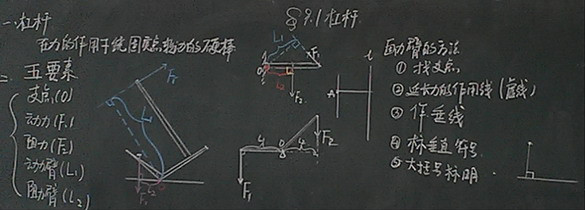 §9.1 杠杆
一.杠杆
在力的作用下绕固定点转动的硬棒
二 五要素
支点(O)
动力(F₁)
阻力(F₂)
动力臂(L₁)
阻力臂(L₂)
F₁
L₁
F₂
L₁
F₁
O
F₂
F₁
L₁
O
F₂
A
l
画力臂的方法
① 找支点
② 延长力的作用线(虚线)
③ 作垂线
④ 标垂直符号
⑤ 大括号标明.